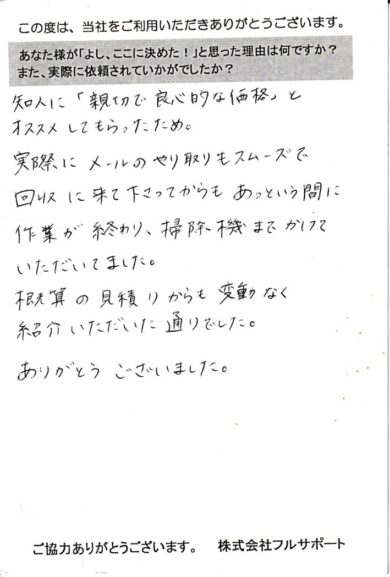 この度は、当社をご利用いただきありがとうございます。
あなた様が「よし、ここに決めた！」と思った理由は何ですか？
また、実際に依頼されていかがでしたか？
知人に「親切で良心的な価格」と
オススメしてもらったため。
実際にメールのやり取りもスムーズで
回収に来て下さってからもあっという間に
作業が終わり、掃除機までかけて
いただいてました。
概算の見積りからも変動なく
紹介いただいた通りでした。
ありがとうございました。
ご協力ありがとうございます。　株式会社フルサポート